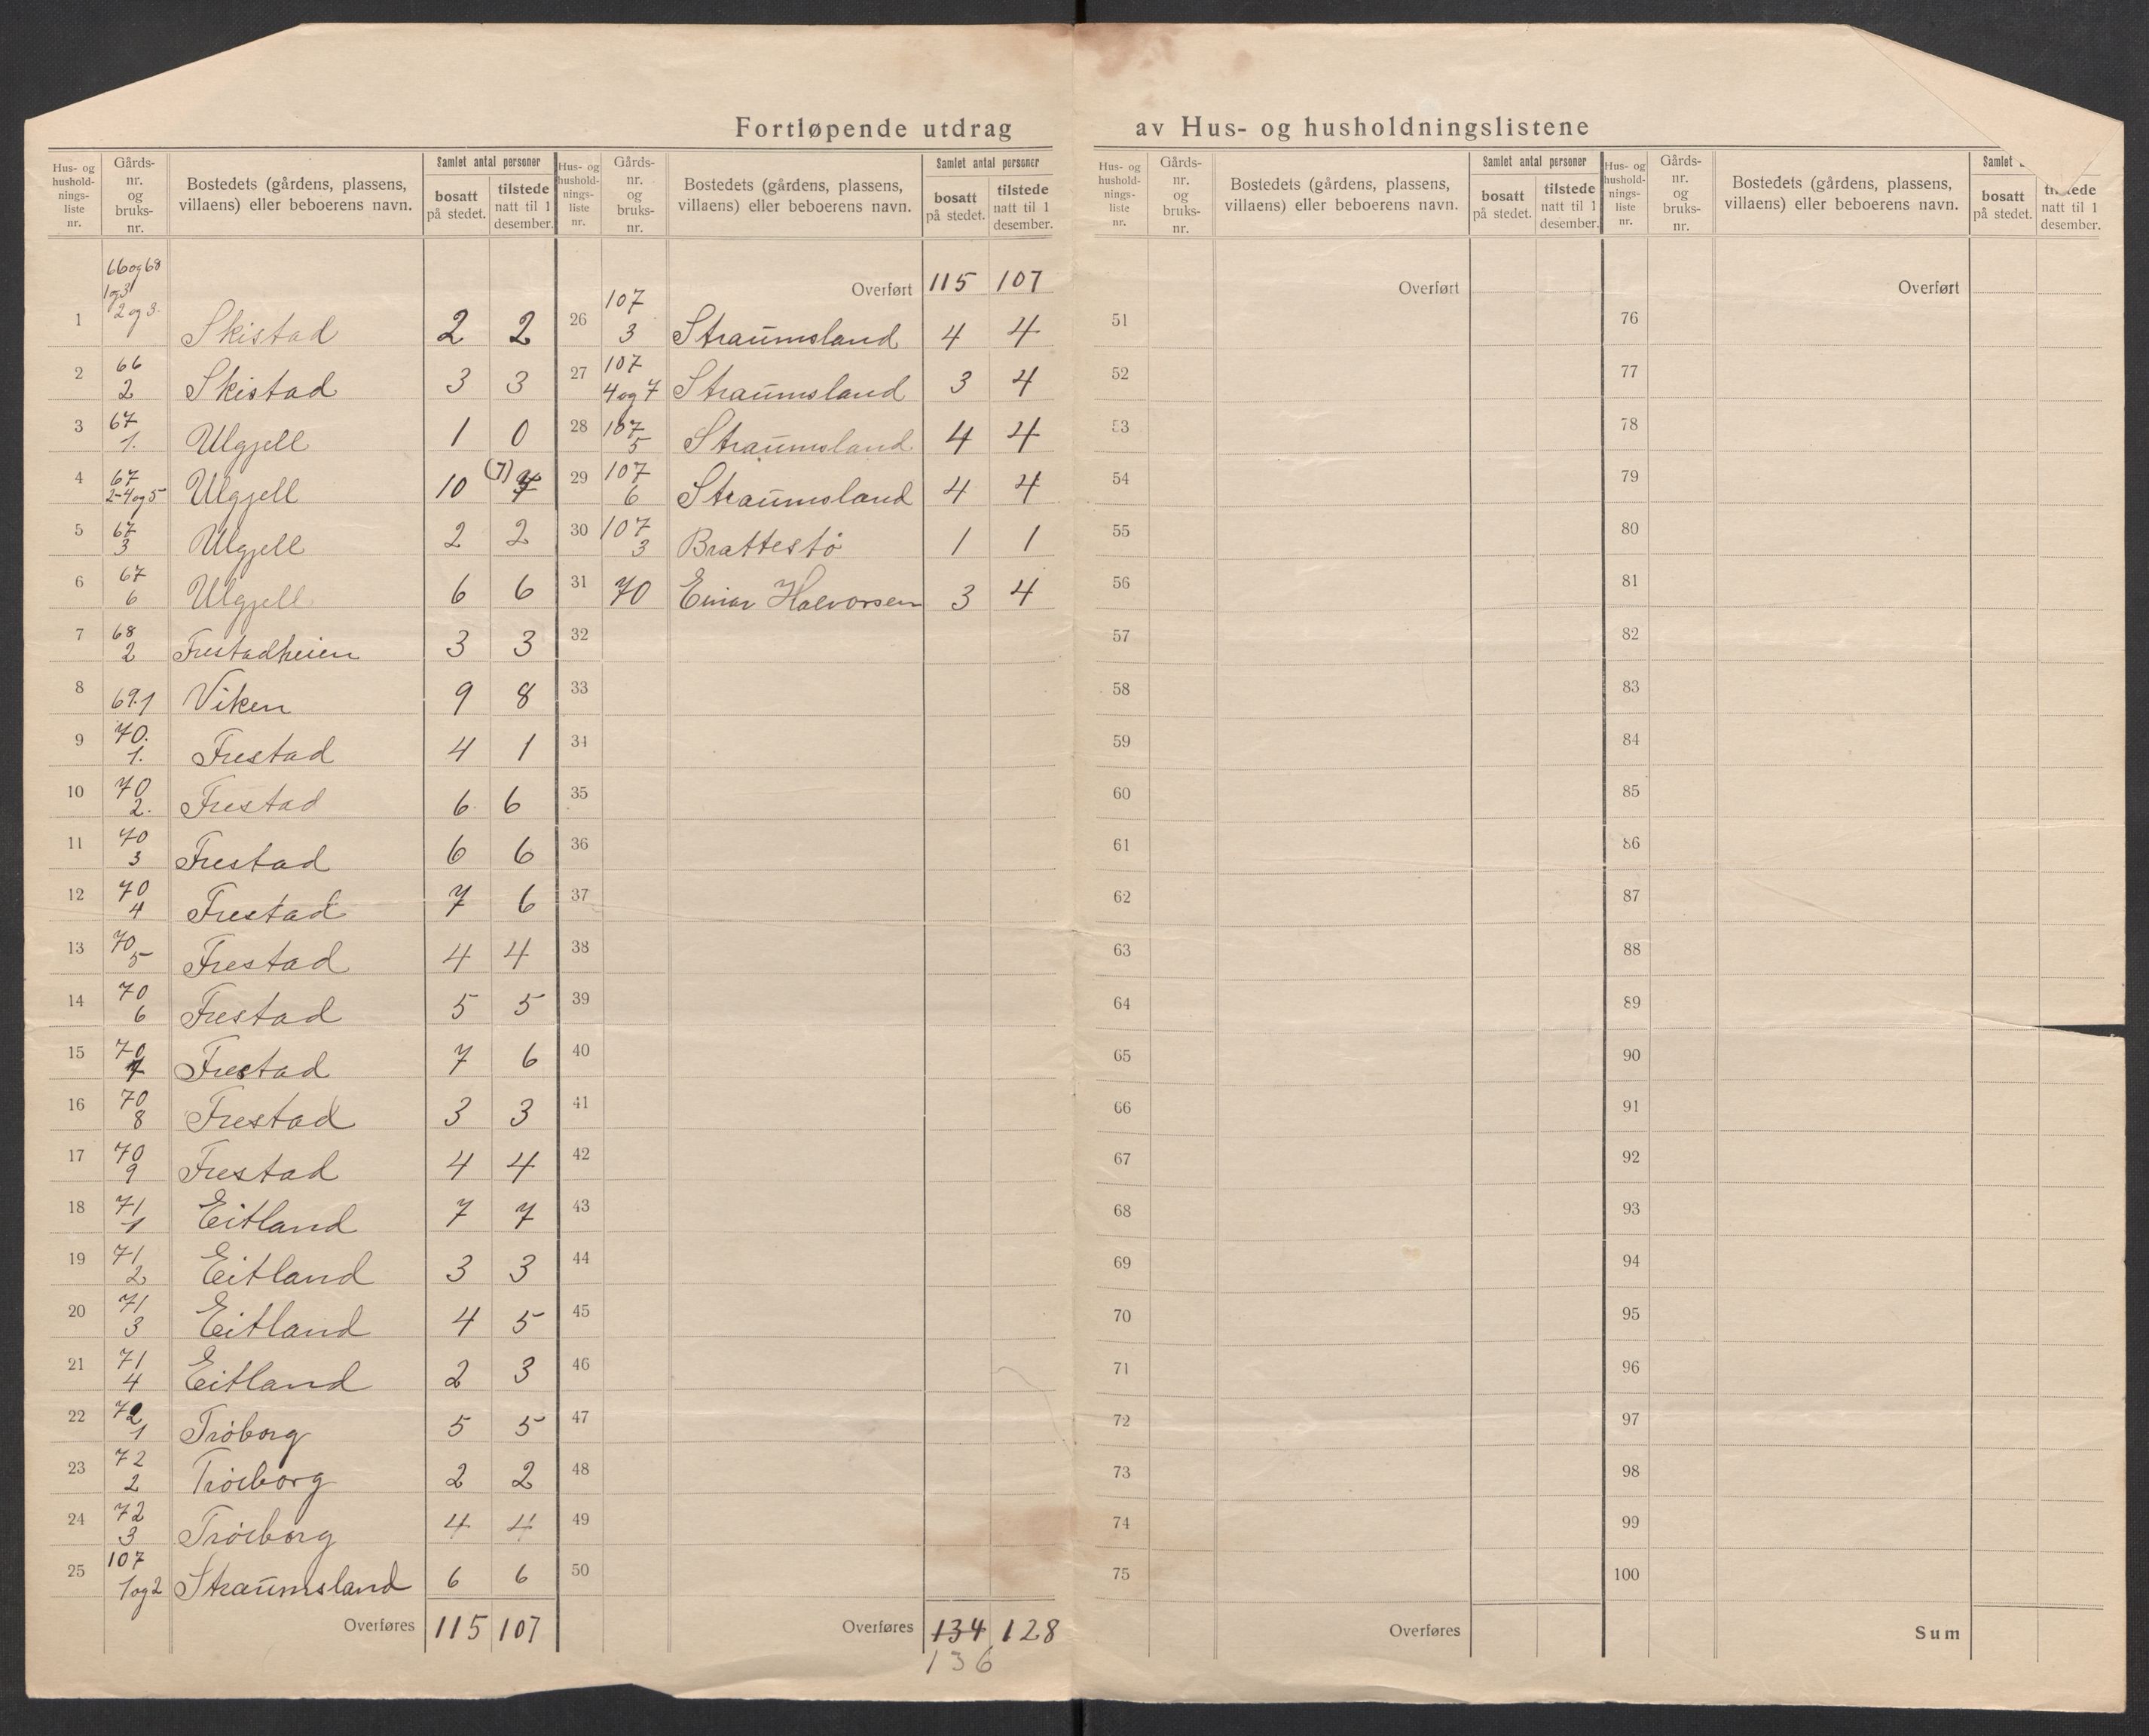 Fortløpende utdrag av Hus- og husholdningslistene
Hus- og hushold- nings- liste nr. | Gårds- nr. og bruks- nr. | Bostedets (gårdens, plassens, villaens) eller beboerens navn. | Samlet antal personer | bosatt på stedet. | tilstede natt til 1 desember.
1 | 66 og 68 1 og 3 2 og 3. | Skistad | 2 | 2
2 | 66 2 | Skistad | 3 | 3
3 | 67 1. | Ulgjell | 1 | 0
4 | 67 2-4 og 5 | Ulgjell | 10 | (7) 7
5 | 67 3 | Ulgjell | 2 | 2
6 | 67 6 | Ulgjell | 6 | 6
7 | 68 2 | Frestadheien | 3 | 3
8 | 69.1 | Viken | 9 | 8
9 | 70. 1. | Frestad | 4 | 1
10 | 70 2. | Frestad | 6 | 6
11 | 70 3 | Frestad | 6 | 6
12 | 70 4 | Frestad | 7 | 6
13 | 70 5 | Frestad | 4 | 4
14 | 70 6 | Frestad | 5 | 5
15 | 70 7 | Frestad | 7 | 6
16 | 70 8 | Frestad | 3 | 3
17 | 70 9 | Frestad | 4 | 4
18 | 71 1 | Eitland | 7 | 7
19 | 71 2 | Eitland | 3 | 3
20 | 71 3 | Eitland | 4 | 5
21 | 71 4 | Eitland | 2 | 3
22 | 72 1 | Trøborg | 5 | 5
23 | 72 2 | Trøiborg | 2 | 2
24 | 72 3 | Trøiborg | 4 | 4
25 | 107 1 og 2 | Straumsland | 6 | 6
Overføres | 115 | 107
Hus- og hushold- nings- liste nr. | Gårds- nr. og bruks- nr. | Bostedets (gårdens, plassens, villaens) eller beboerens navn. | Samlet antal personer | bosatt på stedet. | tilstede natt til 1 desember.
Overført | 115 | 107
26 | 107 3 | Straumsland | 4 | 4
27 | 107 4 og 7 | Straumsland | 3 | 4
28 | 107 5 | Straumsland | 4 | 4
29 | 107 6 | Straumsland | 4 | 4
30 | 107 3 | Brattestø | 1 | 1
31 | 70 | Einar Halvorsen | 3 | 4
32
33
34
35
36
37
38
39
40
41
42
43
44
45
46
47
48
49
50
Overføres | 134 | 128
136
Hus- og hushold- nings- liste nr. | Gårds- nr. og bruks- nr. | Bostedets (gårdens, plassens, villaens) eller beboerens navn. | Samlet antal personer | bosatt på stedet. | tilstede natt til 1 desember.
Overført
51
52
53
54
55
56
57
58
59
60
61
62
63
64
65
66
67
68
69
70
71
72
73
74
75
Overføres
Hus- og hushold- nings- liste nr. | Gårds- nr. og bruks- nr. | Bostedets (gårdens, plassens, villaens) eller beboerens navn. | Samlet | bosatt på stedet. | natt til 1 desember.
Overført
76
77
78
79
80
81
82
83
84
85
86
87
88
89
90
91
92
93
94
95
96
97
98
99
100
Sum